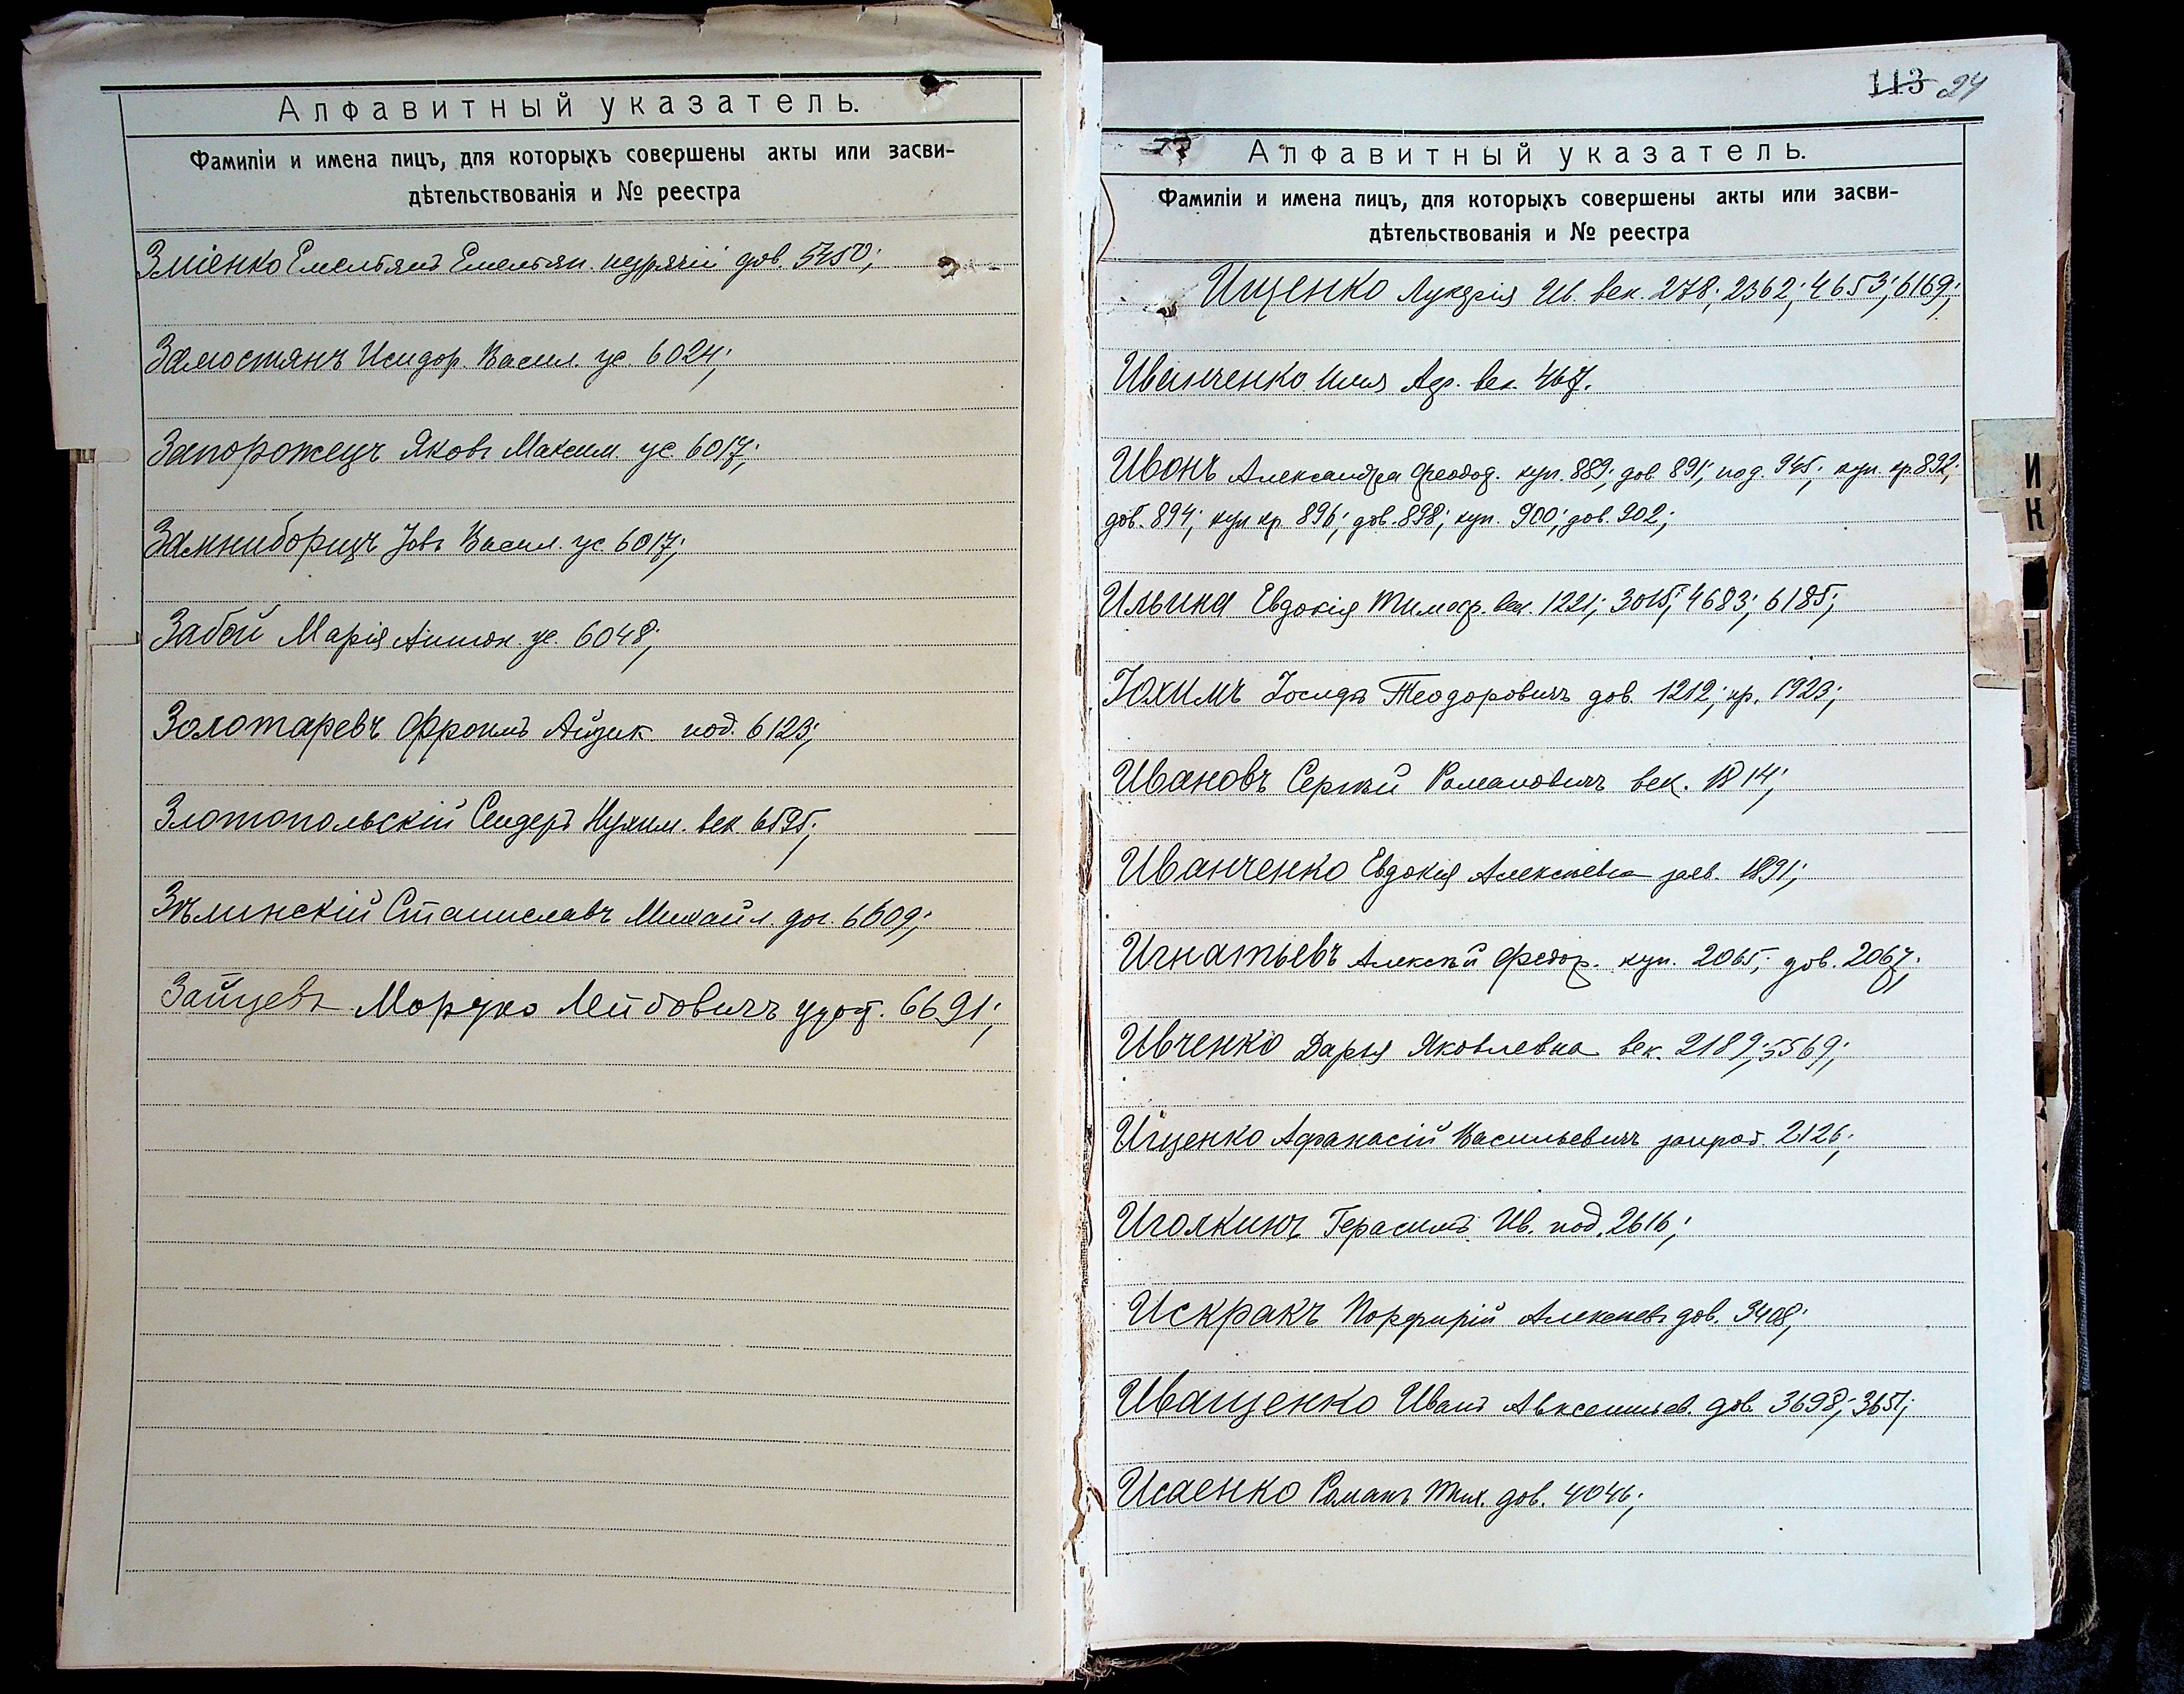 Алфавитный указатель.
Фамиліи и имена лицъ, для которыхъ совершены акты или засви-
дѣтельствованія и № реестра
Зміенко Емельянъ Емельян. дов. 5450;
Замостянъ Исидор. Васил. ус. 6024;
Запорожецъ Яковъ Максим. ус 6017;
Замниборщъ Іовъ Васил. ус. 6017;
Забой Марія Антон. ус. 6048;
Золотаревъ Фроимъ Айзик. под. 6123;
Злотопольскій Сендеръ Нухим. век. 6595;
Зѣлинскій Станиславъ Михайл. дог. 6609;
Зайцевъ Мордко Лейбовичъ удост. 6691;
113 24
Алфавитный указатель.
Фамиліи и имена лицъ, для которыхъ совершены акты или засви-
дѣтельствованія и № реестра
Ищенко Лукерія Ив. век. 278; 2362; 4653; 6169;
Иванченко Илья век. 467.
Ивонъ Александра Феодод. куп. 889; дов. 891; под. 945; куп. кр. 892;
дов. 894; куп кр. 896; дов. 898; куп. 900; дов. 902;
Ильина Евдокія Тимоф. век. 1221; 3015; 4683; 6185;
Іохимъ Іосифъ Теодоровичъ дов. 1212; кр. 1923;
Ивановъ Сергѣй Романовичъ век. 1814;
Иванченко Евдокія Алексѣевна заяв. 1891;
Игнатьевъ Алексѣй Федор. куп. 2065; дов. 2067;
Ивченко Дарья Яковлевна век. 2189; 5569;
Ищенко Афанасій Васильевичъ 2126;
Иголкинъ Герасимъ Ив. под. 2616;
Искракъ Порфирій Алексѣевъ дов. 3408;
Иващенко Иванъ Авксентьев. дов. 3698; 3651;
Исаенко Романъ Тих. дов. 4046;
И
К